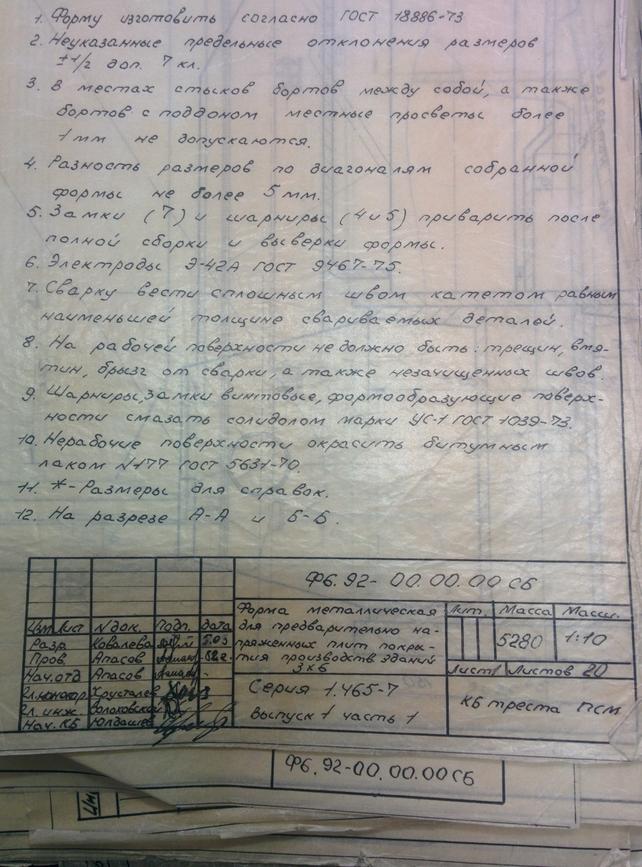 1. Форму изготовить согласно ГОСТ 18886-73
2. Неуказанные предельные отклонения размеров
±1/2 доп. 7 кл.
3. В местах стыков бортов между собой, а также
бортов с поддоном местные просветы более
1 мм не допускаются.
4. Разность размеров по диагоналям собранной
формы не более 5 мм.
5. Замки (7) и шарниры (4 и 5) приварить после
полной сборки и выверки формы.
6. Электроды Э-42А ГОСТ 9467-75.
7. Сварку вести сплошным швом катетом равным
наименьшей толщине свариваемых деталей.
8. На рабочей поверхности не должно быть: трещин, вмя-
тин, брызг от сварки, а также незачищенных швов.
9. Шарниры, замки винтовые, формообразующие поверх-
ности смазать солидолом марки УС-1 ГОСТ 1039-73.
10. Нерабочие поверхности окрасить битумным
лаком N177 ГОСТ 5631-70.
11. *-Размеры для справок.
12. На разрезе А-А и Б-Б.
Ф6.92-00.00.00 СБ
Изм Лист N док. Подп. дата
Разр Ковалева
Пров Апасов
Нач.отд Апасов
Гл.констр. Хрусталев
Гл. инж. Волоковский
Нач. КБ Юлдашев
Форма металлическая
для предварительно на-
пряженных плит покры-
тия производств зданий
3х6
Серия 1.465-7
Выпуск 1 часть 1
Лит. Масса Масш.
5280 1:10
Лист 1 Листов 20
КБ треста ПСМ
Ф6.92-00.00.00 СБ